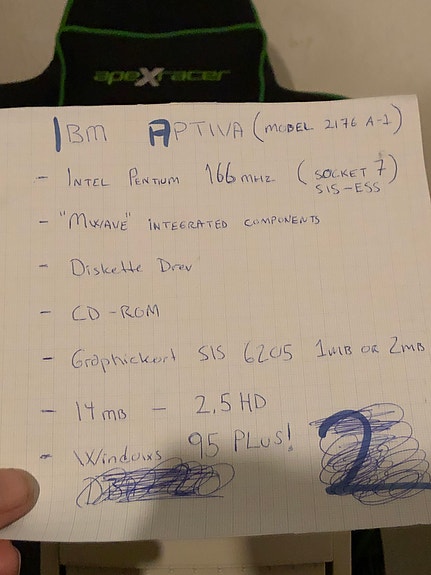 apexracer
IBM APTIVA (MODEL 2176 A-1)
- INTEL PENTIUM 166 MHZ (SOCKET 7
SIS-ESS)
- "MWAVE" INTEGRATED COMPONENTS
- Diskette Drev
- CD-ROM
- Graphickort SIS 6205 1MB OR 2MB
- 14 MB - 2,5 HD
- Windows 95 PLUS!
2